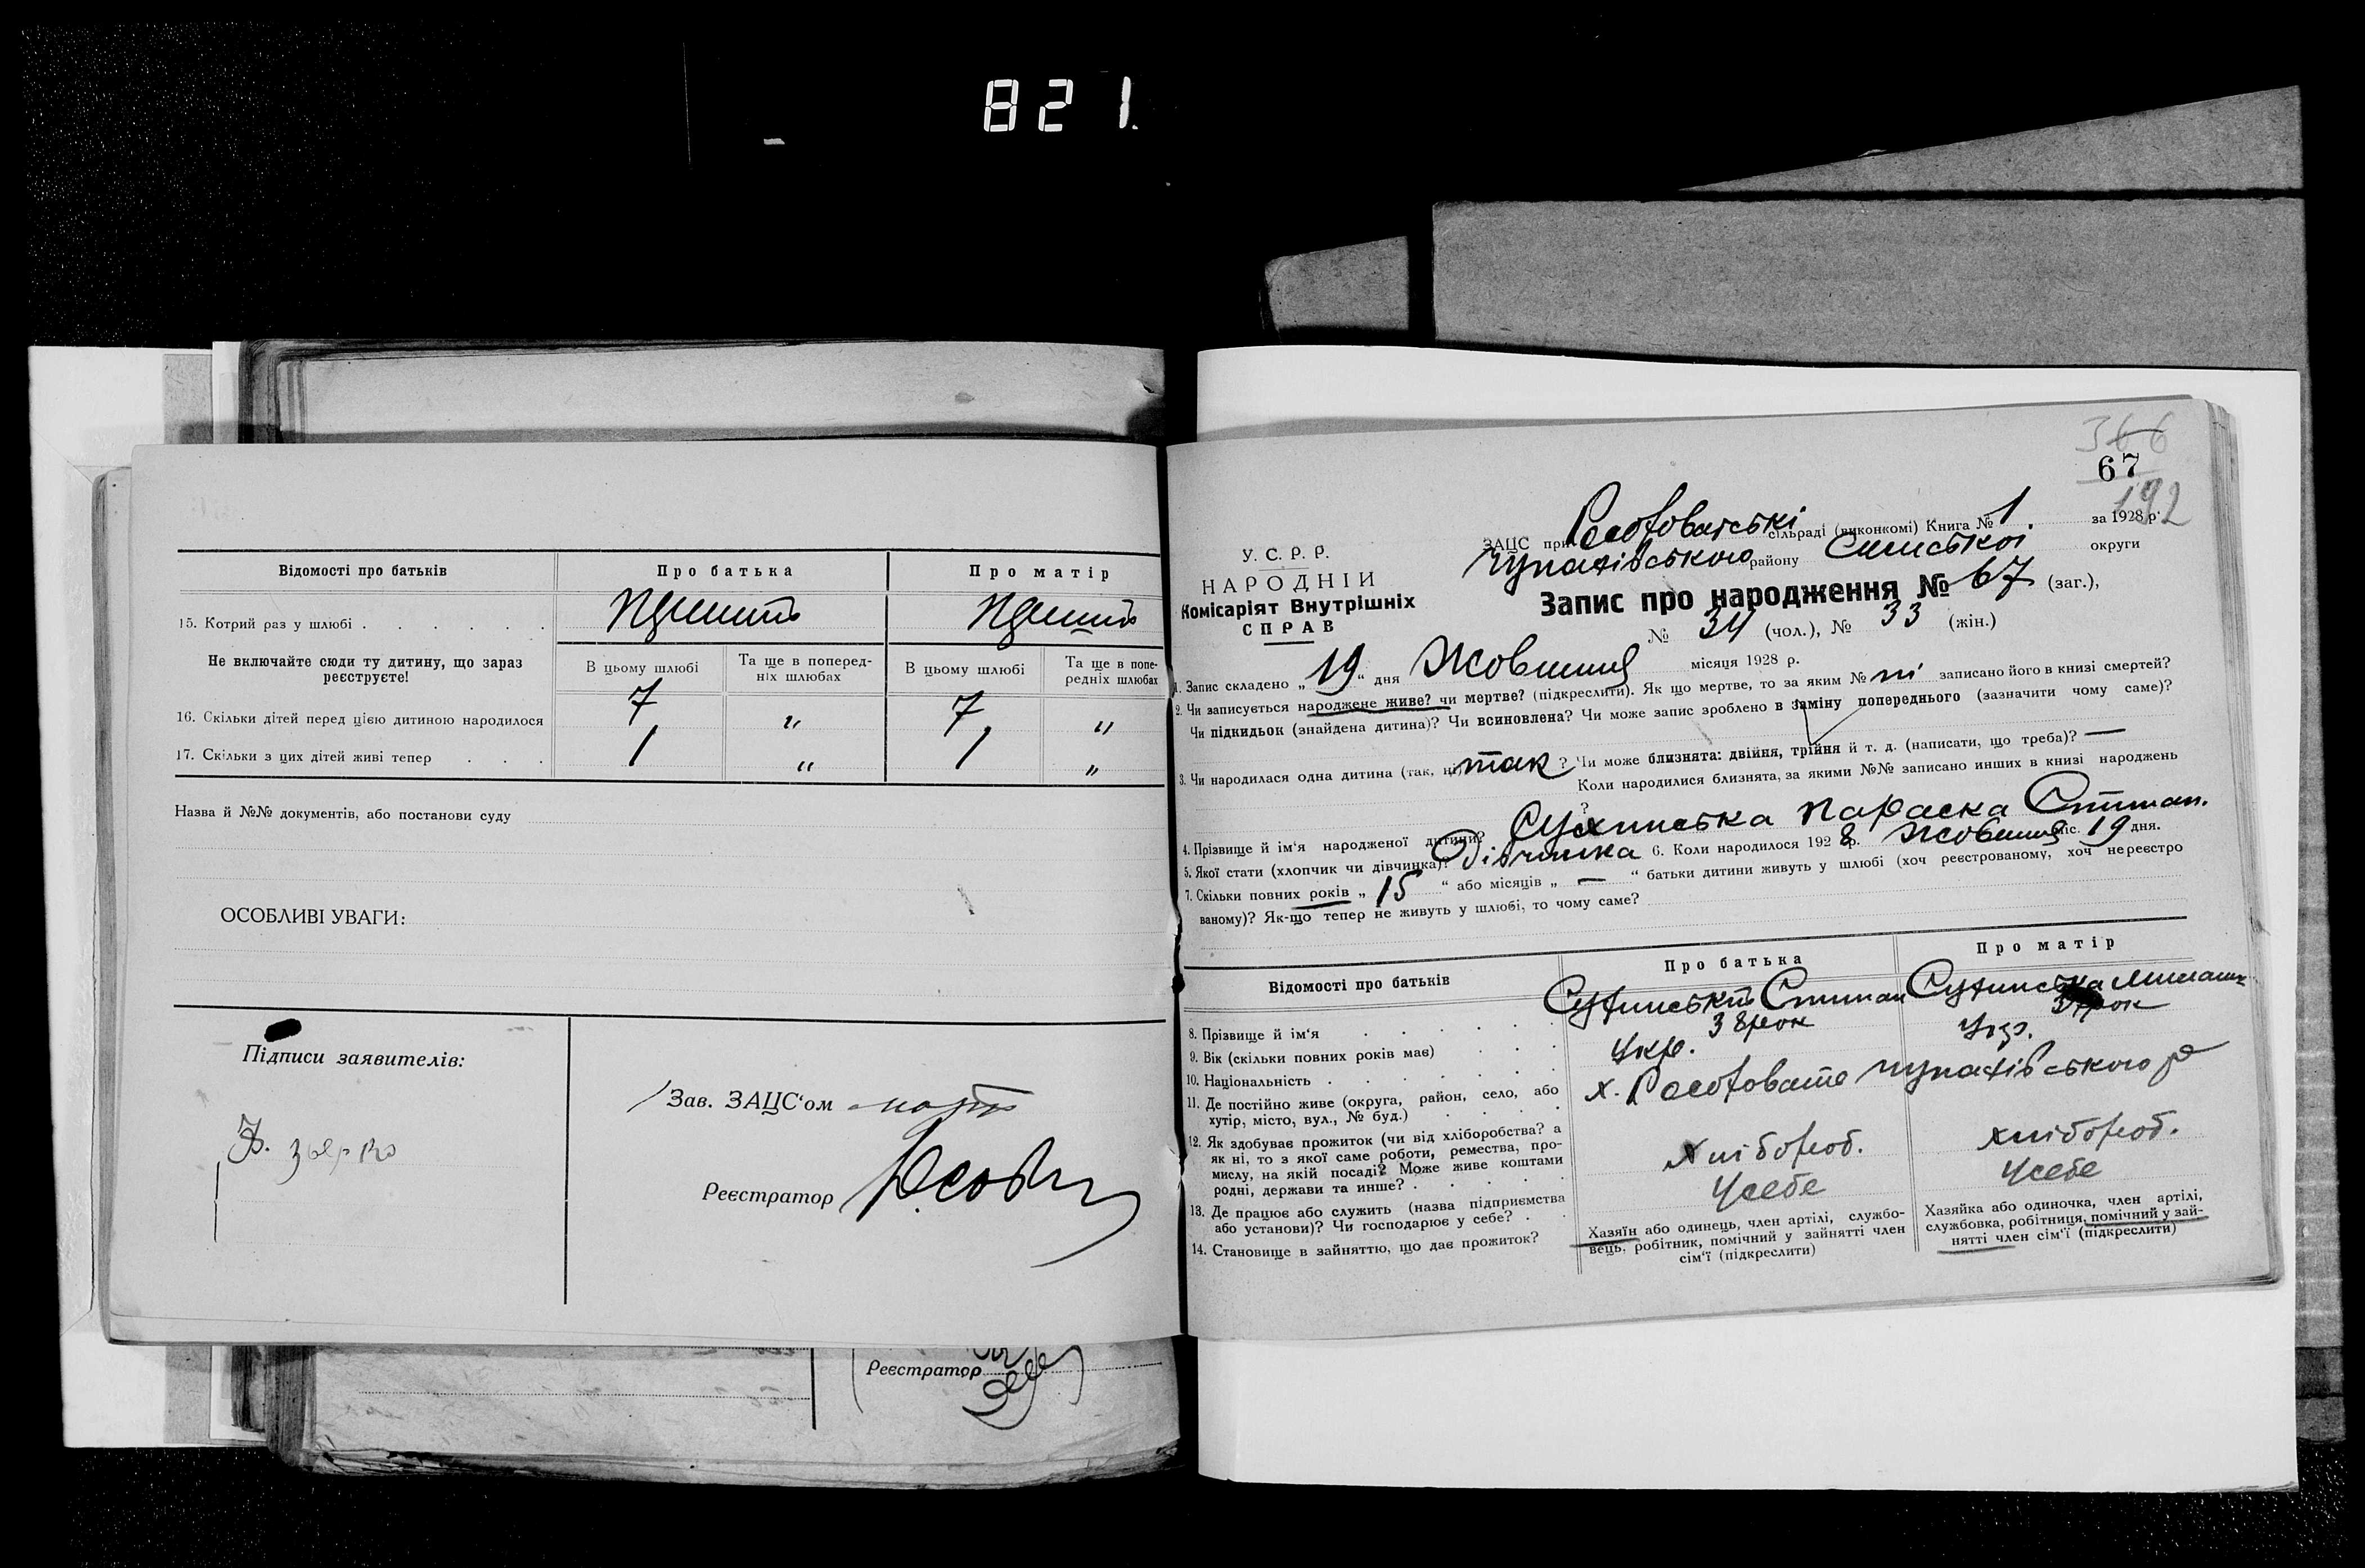 821.
Відомості про батьків
Про батька
Про матір
15. Котрий раз у шлюбі
Не включайте сюди ту дитину, що зараз
реєструєте!
В цьому шлюбі
Та ще в поперед-
ніх шлюбах
В цьому шлюбі
Та ще в попе-
редніх шлюбах
16. Скільки дітей перед цією дитиною народилося 7 " 7 "
17. Скільки з цих дітей живі тепер 1 " 1 "
Назва й №№ документів, або постанови суду
ОСОБЛИВІ УВАГИ:
Підписи заявителів:
Зав. ЗАЦС'ом
Реєстратор
Реєстратор
366
67
192
У. С. Р. Р.
НАРОДНІЙ
Комісаріят Внутрішніх
СПРАВ
ЗАЦС при сільраді (виконкомі) Книга № 1. за 1928 р.
району Сумської округи
Запис про народження № 67 (заг.),
№ 34 (чол.), № 33 (жін.)
1. Запис складено „19" дня Жовтня місяця 1928 р.
2. Чи записується народжене живе? чи мертве? (підкреслити). Як що мертве, то за яким № ні записано його в книзі смертей?
Чи підкидьок (знайдена дитина)? Чи всиновлена? Чи може запис зроблено в заміну попереднього (зазначити чому саме)?
3. Чи народилася одна дитина (так, ні) так ? Чи може близнята: двійня, трійня й т. д. (написати, що треба)? —
Коли народилися близнята, за якими №№ записано инших в книзі народжень
?
4. Прізвище й ім'я народженої дитини? Сухинська Параска Степан.
5. Якої стати (хлопчик чи дівчинка)? Дівчинка 6. Коли народилося 1928 р. Жовтня міс. 19 дня.
7. Скільки повних років „ 15 " або місяців „ — " батьки дитини живуть у шлюбі (хоч реєстрованому, хоч нереєстро
ваному)? Як-що тепер не живуть у шлюбі, то чому саме?
Відомості про батьків
Про батька
Про матір
8. Прізвище й ім'я
Сухинський Степан
Сухинська
9. Вік (скільки повних років має)
38 рок
рок
10. Національність
Укр.
Укр.
11. Де постійно живе (округа, район, село, або
хутір, місто, вул., № буд.)
х.
12. Як здобуває прожиток (чи від хліборобства? а
як ні, то з якої саме роботи, ремества, про-
мислу, на якій посаді? Може живе коштами
родні, держави та инше?
Хлібороб.
хлібороб.
13. Де працює або служить (назва підприємства
або установи)? Чи господарює у себе?
У себе
У себе
14. Становище в зайняттю, що дає прожиток?
Хазяїн або одинець, член артілі, службо-
вець, робітник, помічний у зайнятті член
сім'ї (підкреслити)
Хазяйка або одиночка, член артілі,
службовка, робітниця, помічний у зай-
нятті член сім'ї (підкреслити)